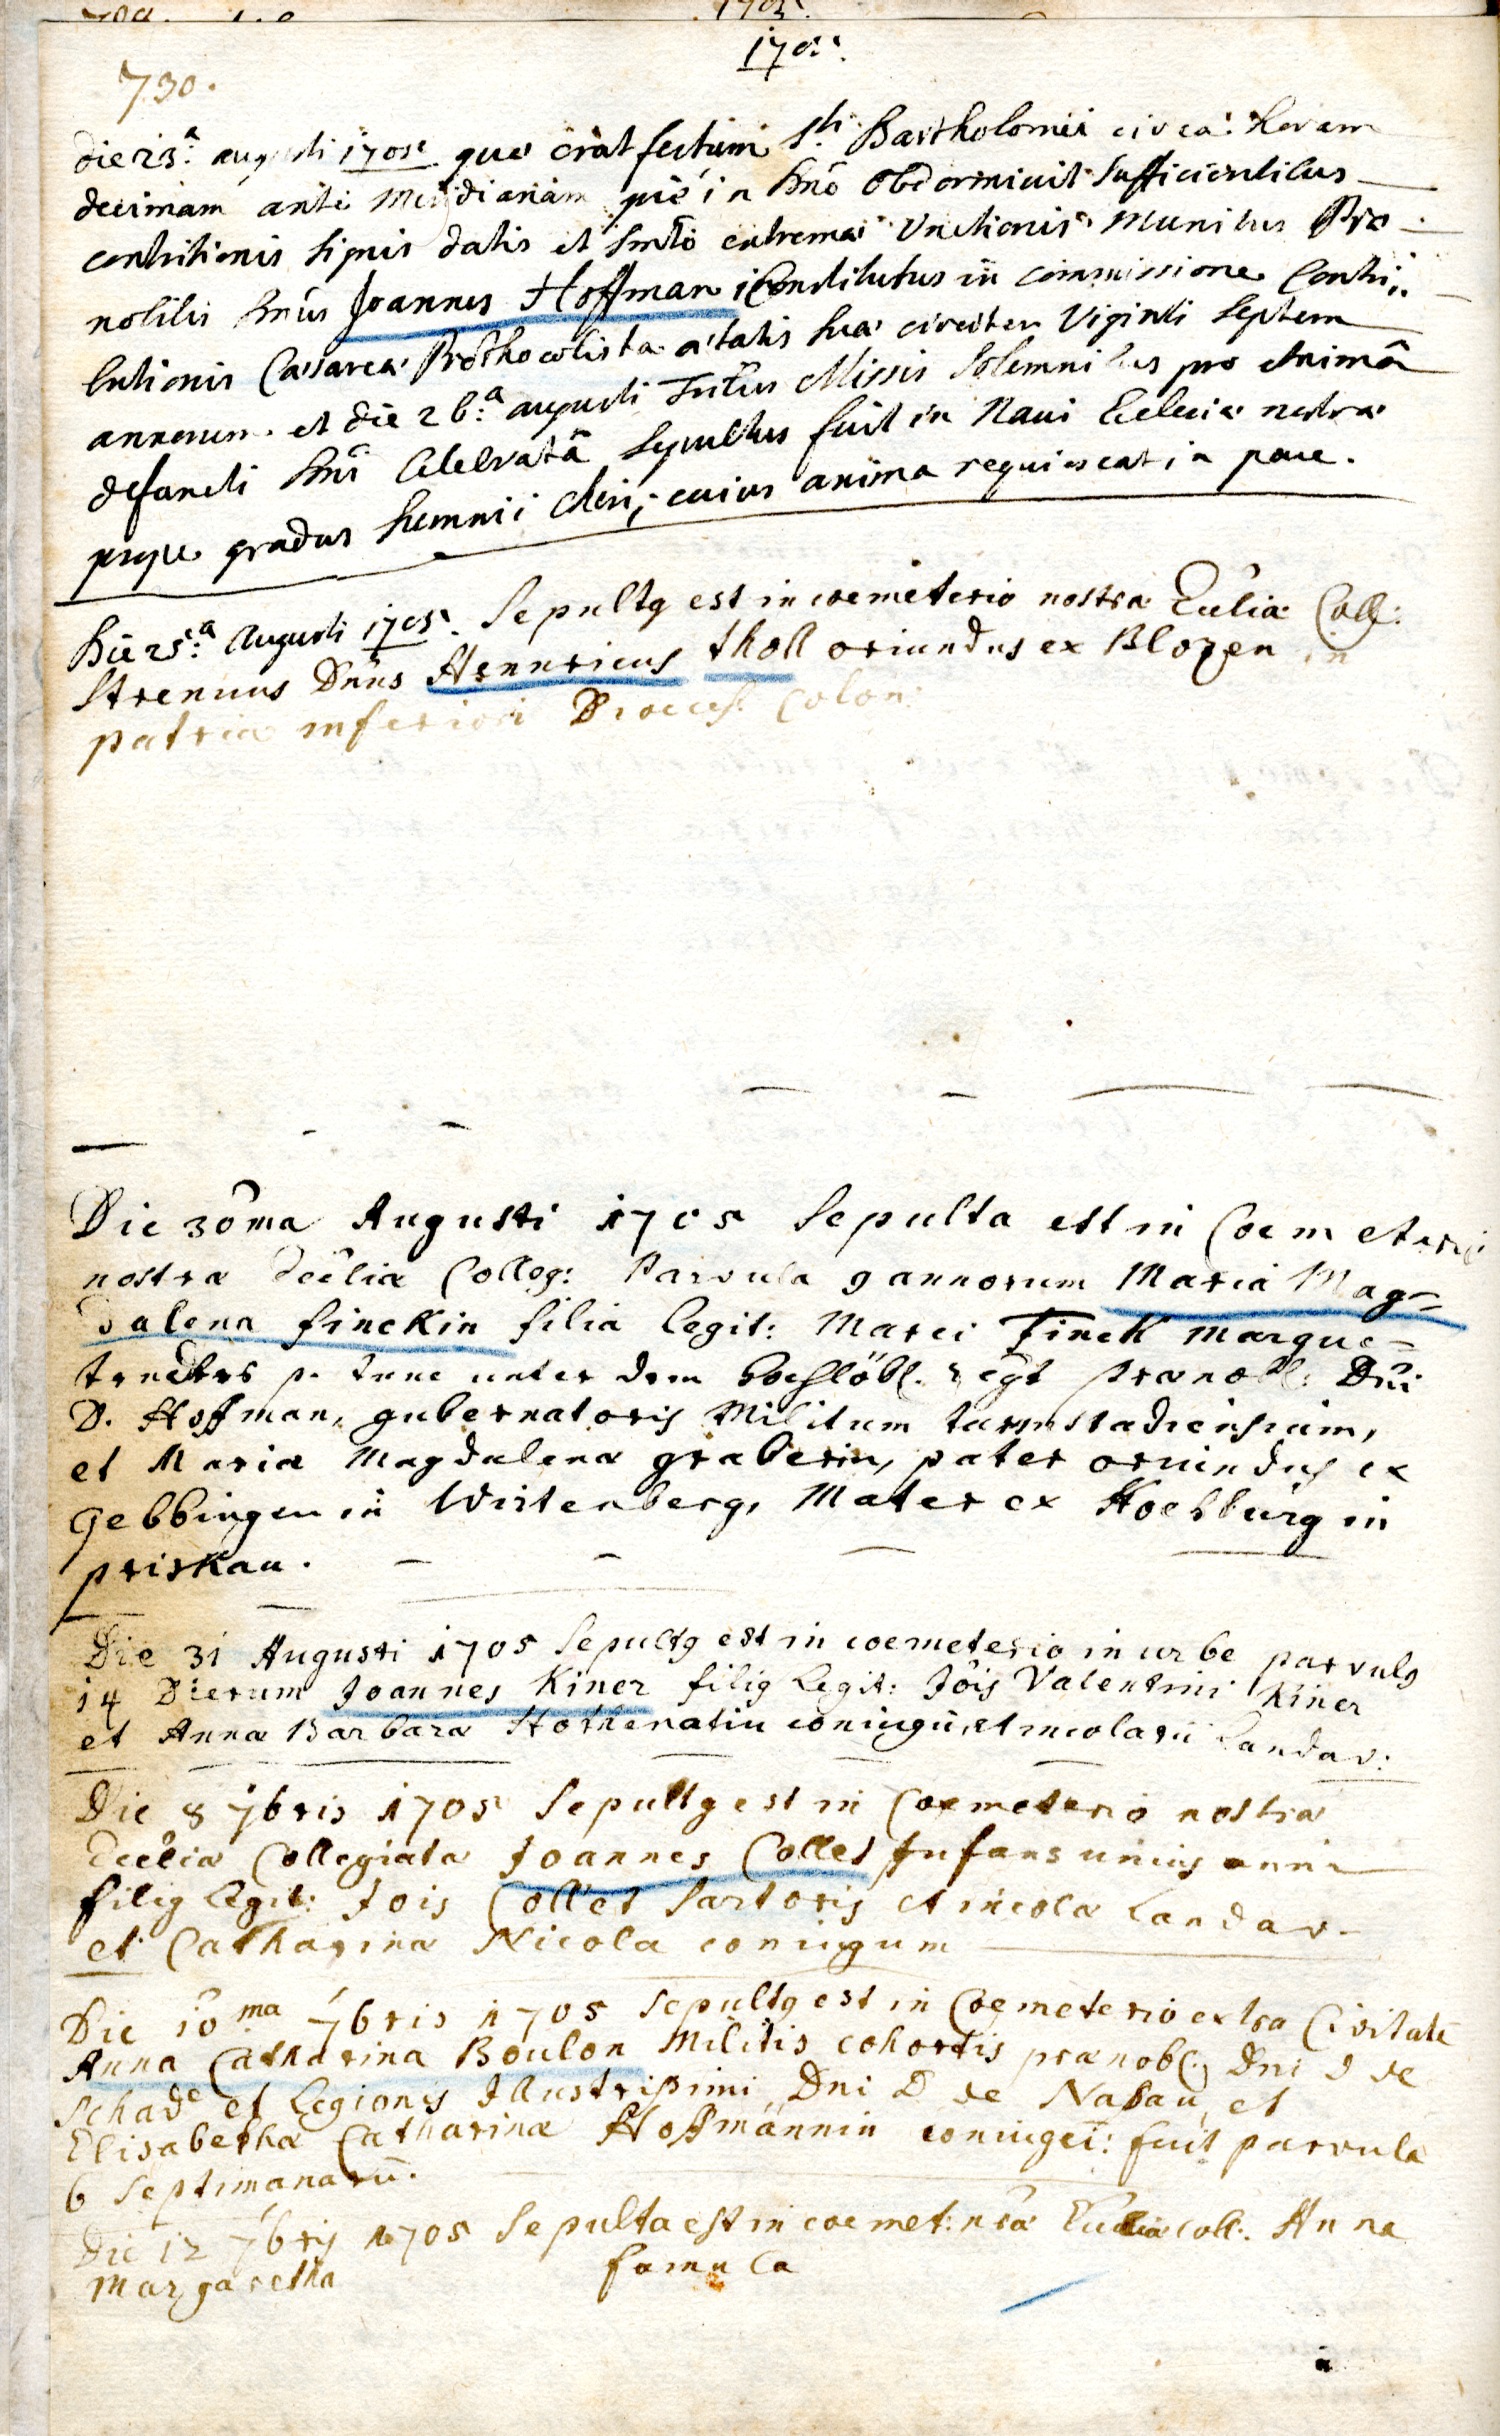 1705.
730.
die 23.a augusti 1705 quâ erat festum Sti. Bartholomei circa horam
decimam ante Meridianam piè in Dno obdormivit sufficientibus
contritionis signis datis et smto extremae Unctionis munitus Prae-
nobilis Dnus Joannes Hoffman constitutus in commissione Contri,,
butionis Caesareae Prothocolista aetatis suae circiter Viginti Septem
annorum. et die 26.a augusti Tribus Missis Solemnibus pro Animâ
defuncti Dni Celebratâ Sepultus fuit in Navi Ecclesiae nostrae
prope gradus Summi Chori, cuius anima requiescat in pace.
Die 25.a Augusti 1705. Sepultq est in coemeterio nostrae Eccliae Coll:
Strenuus Dnus Hennricus tholl oriundus ex Blozen in
patria inferiori Dioces: Colon:
Die 30ma Augusti 1705 Sepulta est in Coemeterio
nostrae Ecclia Colleg: Parvula 9 annorum Maria Mag=
dalena finckin filia legit: Marci Finck marque=
p. tunc unter dem hochlöbl. Regt praenobl: Dni
D. Hoffman, gubernatoris Militum tarmstadiensium,
et Mariae Magdalena graberin, pater oriundus ex
Gebbingen in Wirtenberg, Mater ex Hochburg in
priskau.
Die 31 Augusti 1705 Sepultq est in coemeterio in urbe parvulq
14 Dierum Joannes Kiner filiq legit: Jois Valentini Kiner
et Annae Barbara Hothenatin coniugu, et incolarū Landav:
Die 8 7bris 1705 Sepultq est in Coemeterio nostrae
Eccliae Collegiata Joannes Collet Infans unius anni
filiq legit: Jois Collet Sartoris et incolae Landav-
et Catharina Nicola coniugum
Die 10ma 7bris 1705 Sepultq est in Coemeterio extra Civitatē
Anna Catharina Boulon Militis cohortis praenobl: Dni D de
Schade et legionis Illustrissimi Dni D de Nassau, et
Elisabetha Catharinae Hoffmännin coniugū: fuit parvula
6 Septimanarū.
Die 12 7bris 1705 Sepulta est in coemet: nrae Eccliae coll: Anna
Margaretha famula